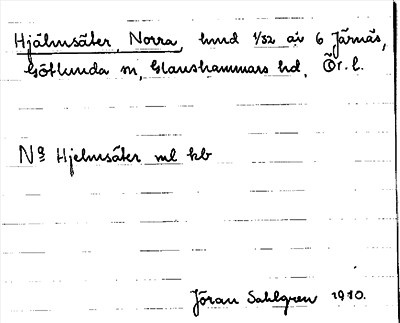 Hjälmsäter, Norra, hmd 1/32 av 6 Järnäs,
Götlunda sn, Glanshammars hd, Ör. l.
Na Hjelmsäter ml kb
Jöran Sahlgren 1910.